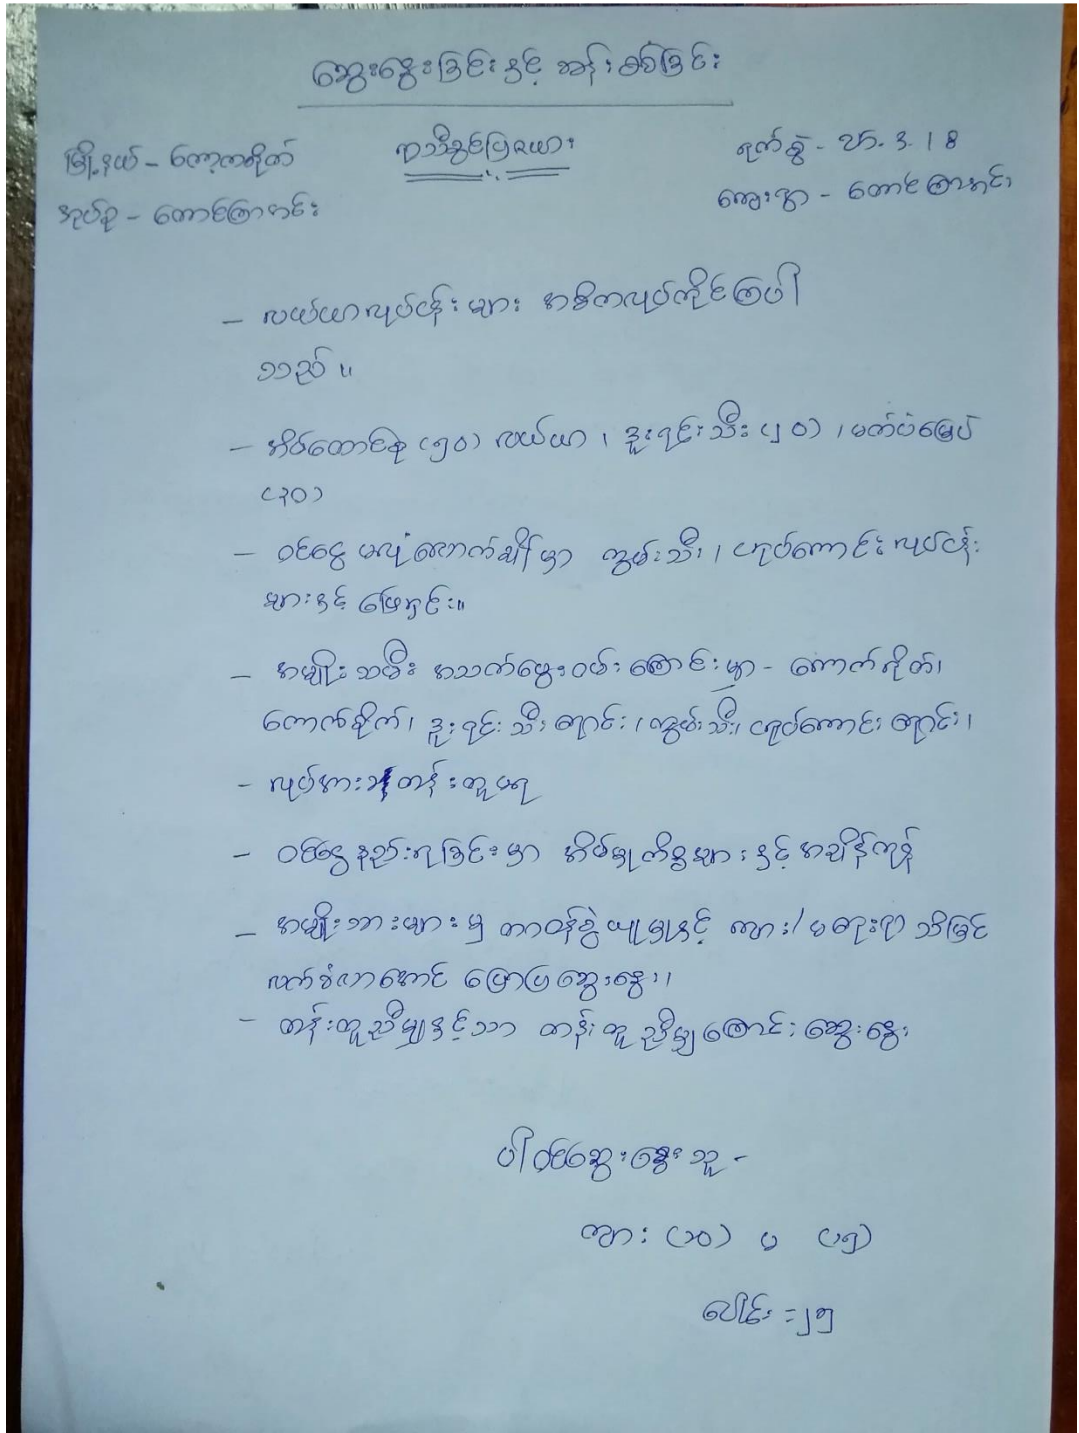 ဆွေးနွေးခြင်းနှင့် ဆန်းစစ်ခြင်း
မြို့နယ် - ကော့ကရိတ် ရာသီခွင်ပြဇယား ရက်စွဲ - ၁၅.၃.၂၀၁၈
အုပ်စု - တောင်ကြာအင်း ကျေးရွာ - တောင်ကြာအင်း
- လယ်ယာလုပ်ငန်းများ အဓိကလုပ်ကိုင်ကြပါ
သည်။
- အိမ်ထောင်စု (၅၀) လယ်ယာ ၊ ဒူးရင်းသီး (၂၀) ၊ မတ်ပဲမြေပဲ
(၃၀)
- ဝင်ငွေ မလုံလောက်ချိန်မှာ ကွမ်းသီး ၊ ငရုပ်ကောင်း လုပ်ငန်း
များနှင့် ဖြေရှင်း။
- အမျိုးသမီး အသက်မွေးဝမ်းကြောင်းမှာ - ကောက်ရိတ်၊
ကောက်စိုက်၊ ဒူးရင်းသီး ရောင်း ၊ ကွမ်းသီး၊ ငရုပ်ကောင်း ရောင်း ၊
- လုပ်အားခ တန်းတူမရ
- ဝင်ငွေနည်းရခြင်းမှာ အိမ်မှုကိစ္စများနှင့် အချိန်ကုန်
- အမျိုးသားများမှ တာဝန်ခွဲယူမှုနှင့် ကျား/မ
လက်ခံလာအောင် ပြောပြဆွေးနွေး၊
- တန်းတူညီမျှနှင့်သာ တန်းတူညီမျှကြောင်း ဆွေးနွေး
ပါဝင်ဆွေးနွေးသူ -
ကျား (၁၀) မ (၁၅)
ပေါင်း = ၂၅